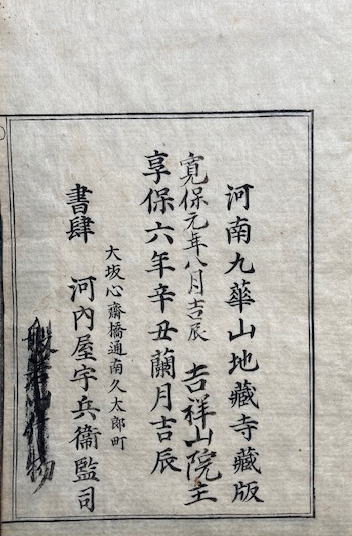 河南九華山地藏寺藏版
寛保元年八月吉辰　吉祥山院主
享保六年辛丑蘭月吉辰
大坂心齋橋通南久太郎町
書肆　河内屋宇兵衞監司
物